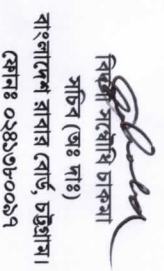 চাকমা
সচিব (অঃ দাঃ)
বাংলাদেশ রাবার বোর্ড, চট্টগ্রাম।
ফোনঃ ০২৪১৩৮০০৬৭